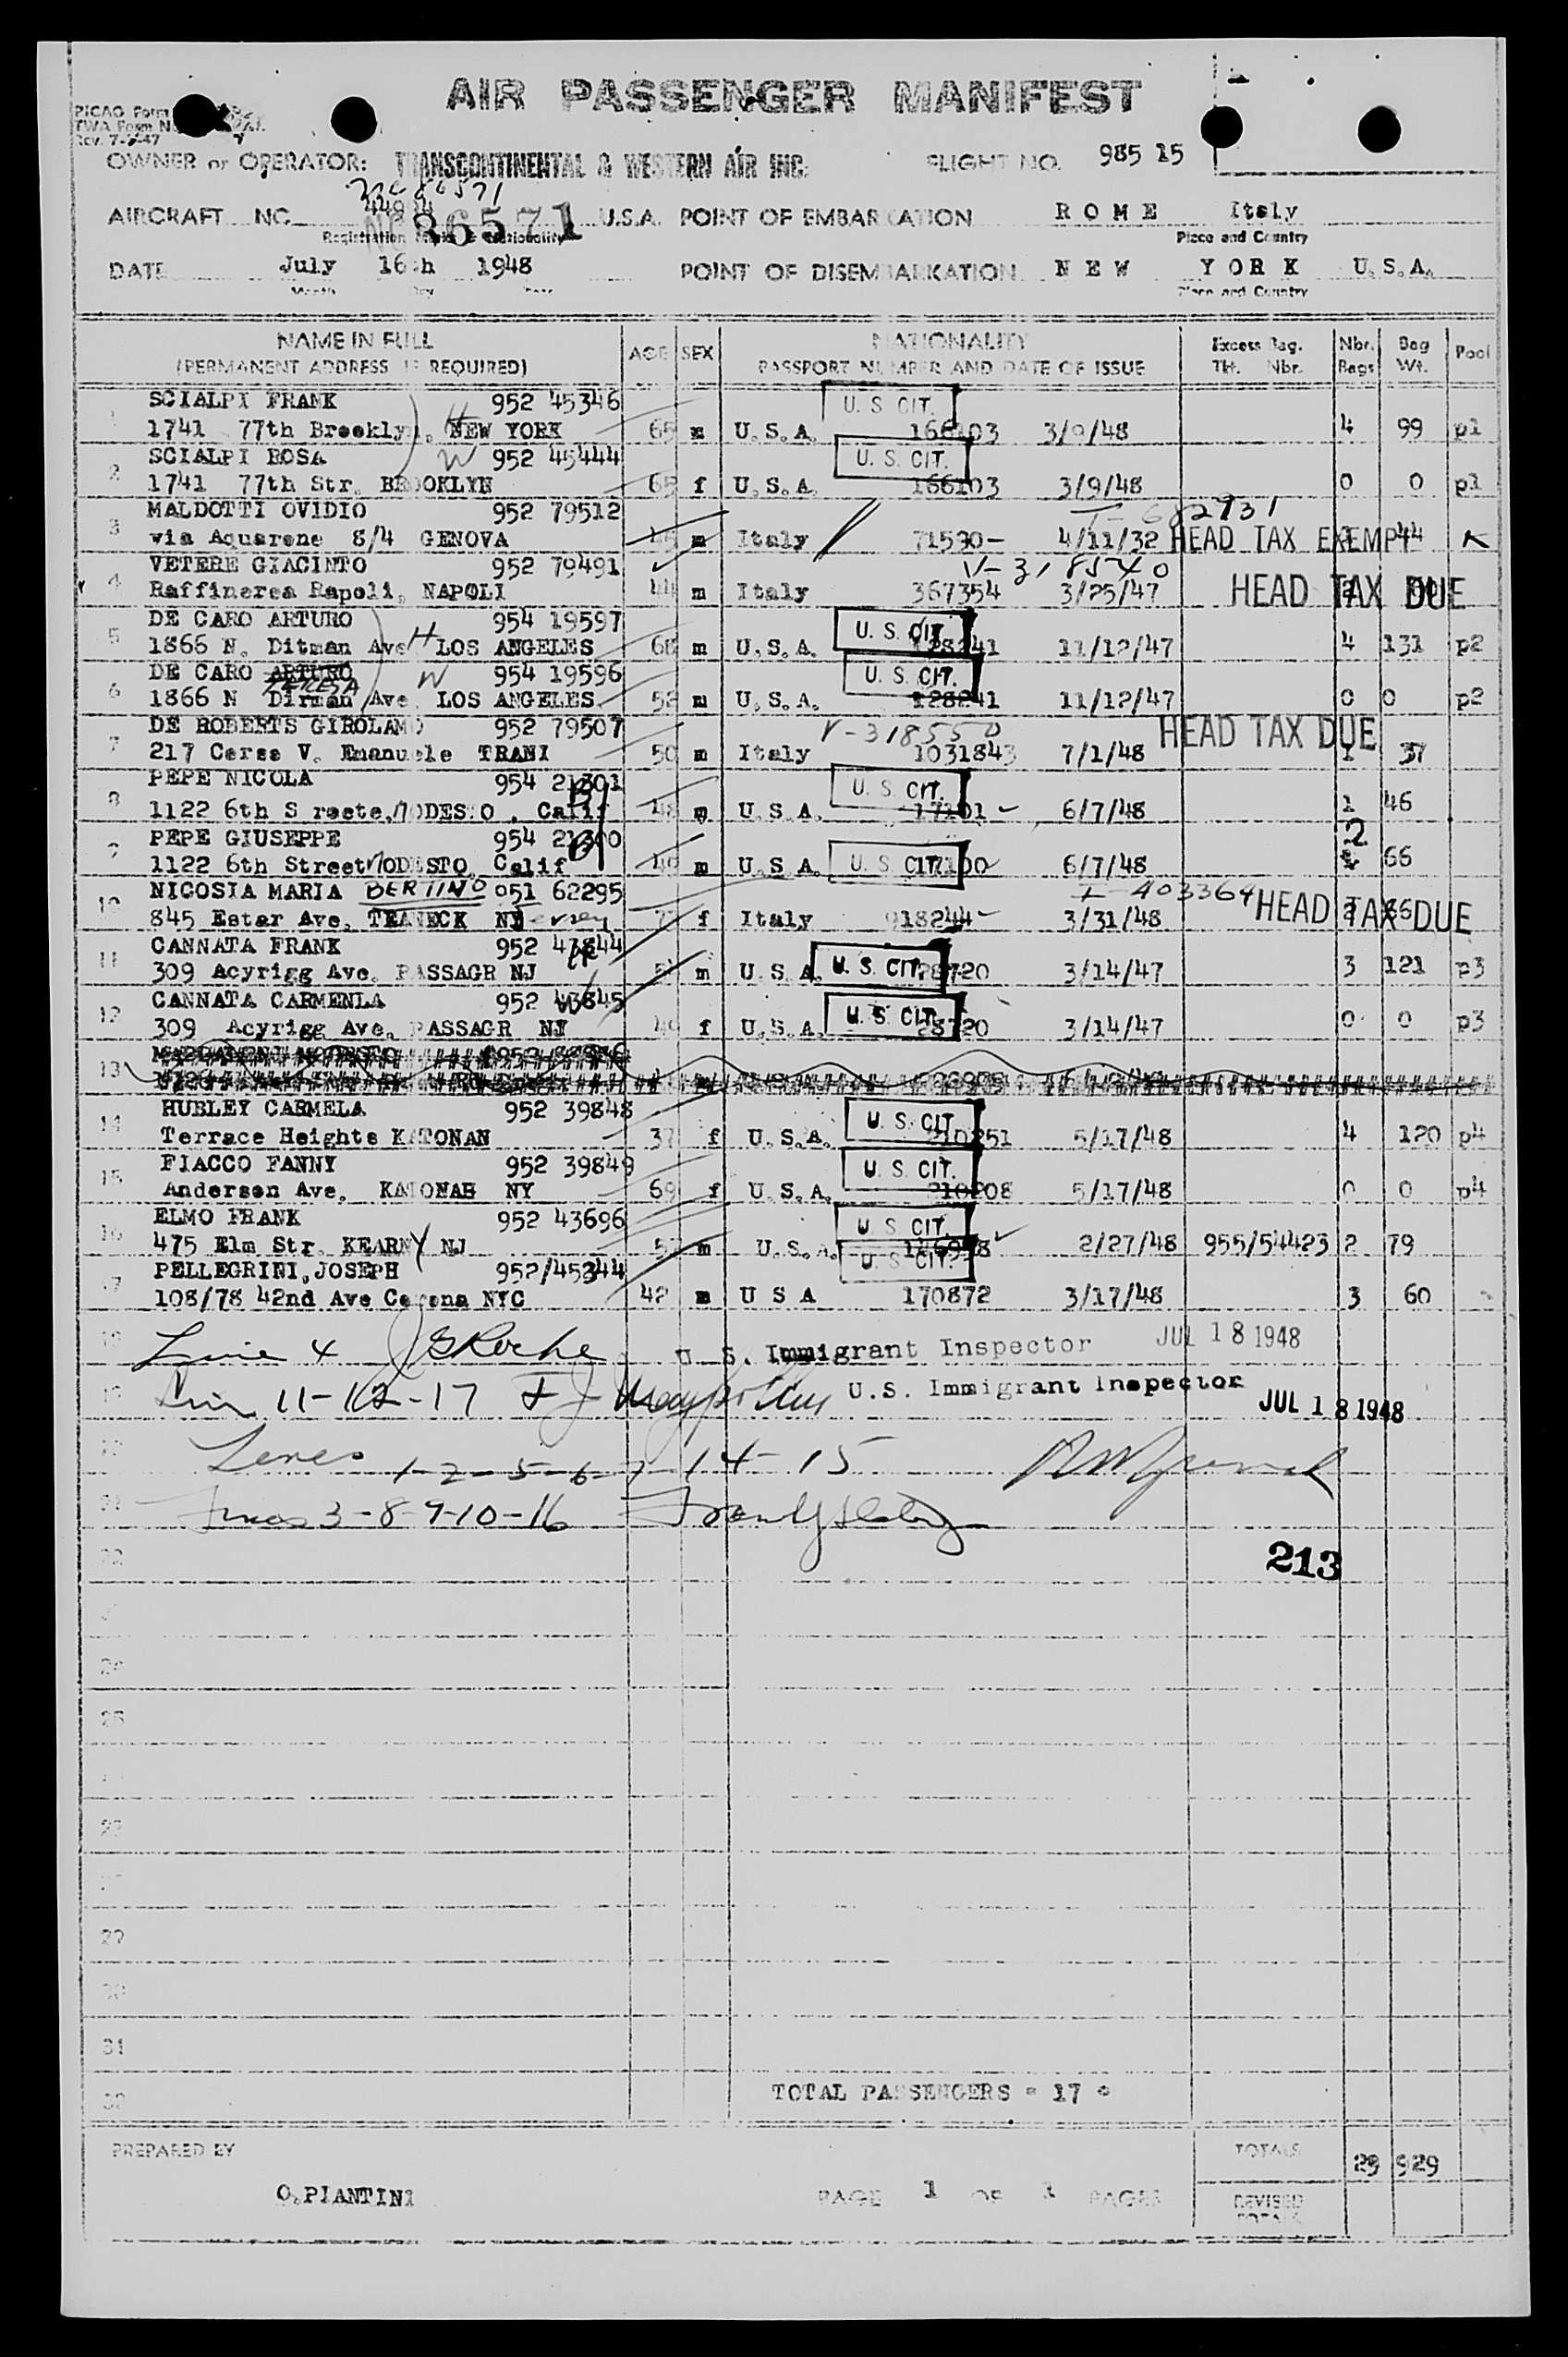 AIR PASSENGER MANIFEST
PICAO Form
TWA Form
Rev. 7-1-47
OWNER or OPERATOR: TRANSCONTINENTAL & WESTERN AIR INC. FLIGHT NO. 985 15
AIRCRAFT NC 86571 U.S.A. POINT OF EMBARKATION ROME Italy
Registration Marks & Nationality Place and Country
DATE July 16th 1948 POINT OF DISEMBARKATION NEW YORK U.S.A.
Month Day Year Place and Country
NAME IN FULL AGE SEX NATIONALITY Excess Bag. Nbr. Bag Pool
(PERMANENT ADDRESS IF REQUIRED) PASSPORT NUMBER AND DATE OF ISSUE Tkt. Nbr. Bags Wt.
1 SCIALPI FRANK 952 45346 U. S. CIT.
1741 77th Brooklyn, NEW YORK H 65 m U.S.A. 166103 3/9/48 4 99 p1
2 SCIALPI ROSA W 952 45444 U. S. CIT.
1741 77th Str. BROOKLYN 65 f U.S.A. 166103 3/9/48 0 0 p1
3 MALDOTTI OVIDIO 952 79512 T-682731
via Aquarone 8/4 GENOVA m Italy 71590- 4/11/32 HEAD TAX EXEMPT 44
4 VETERE GIACINTO 952 79491 V-3185540
Raffinerea Rapoli, NAPOLI 44 m Italy 367354 3/25/47 HEAD TAX DUE
5 DE CARO ARTURO 954 19597 U. S. CIT.
1866 N. Ditman Ave H LOS ANGELES 68 m U.S.A. 128241 11/12/47 4 131 p2
6 DE CARO ARTURO TERESA W 954 19596 U. S. CIT.
1866 N Dirman Ave LOS ANGELES 52 m U.S.A. 128241 11/12/47 0 0 p2
7 DE ROBERTS GIROLAMO 952 79507 V-318550 HEAD TAX DUE
217 Cersa V. Emanuele TRANI 50 m Italy 1031843 7/1/48 1 37
8 PEPE NICOLA 954 21301 U. S. CIT.
1122 6th S reete, MODESTO, Calif 48 m U.S.A. 17101 6/7/48 1 46
9 PEPE GIUSEPPE 954 21300 2
1122 6th Street MODESTO, Calif m U.S.A. U. S. CIT. 17100 6/7/48 66
10 NICOSIA MARIA BERTINO 051 62295 I-403364 HEAD TAX DUE
845 Ester Ave, TEANECK NJersey f Italy 918244- 3/31/48
11 CANNATA FRANK 952 47844
309 Acyrigg Ave. PASSAGR NJ m U.S.A. U. S. CIT. 28720 3/14/47 3 121 p3
12 CANNATA CARMENLA W 952 47845
309 Acyrigg Ave. PASSAGR NJ 49 f U.S.A. U. S. CIT. 28720 3/14/47 0 0 p3
13
14 HUBLEY CARMELA 952 39848 U. S. CIT.
Terrace Heights KATONAN 37 f U.S.A. 210251 5/17/48 4 120 p4
15 FIACCO FANNY 952 39849 U. S. CIT.
Anderson Ave, KATONAH NY 69 f U.S.A. 210208 5/17/48 0 0 p4
16 ELMO FRANK 952 43696 U. S. CIT.
475 Elm Str. KEARNY NJ m U.S.A. 2/27/48 955/54423 2 79
17 PELLEGRINI, JOSEPH 952/45344 U. S. CIT.
108/78 42nd Ave Corona NYC 42 m U S A 170872 3/17/48 3 60
18 Line 4 J G Roche U. S. Immigrant Inspector JUL 18 1948
19 Lin 11-12-17 U.S. Immigrant Inspector JUL 18 1948
20 Lines 1-2-5-6-7-14-15
21 Lines 3-8-9-10-16
22 213
24
25
27
29
30
31
32 TOTAL PASSENGERS = 17 =
PREPARED BY TOTALS 29 929
O.PIANTINI PAGE 1 OF 1 PAGES REVISED TOTALS